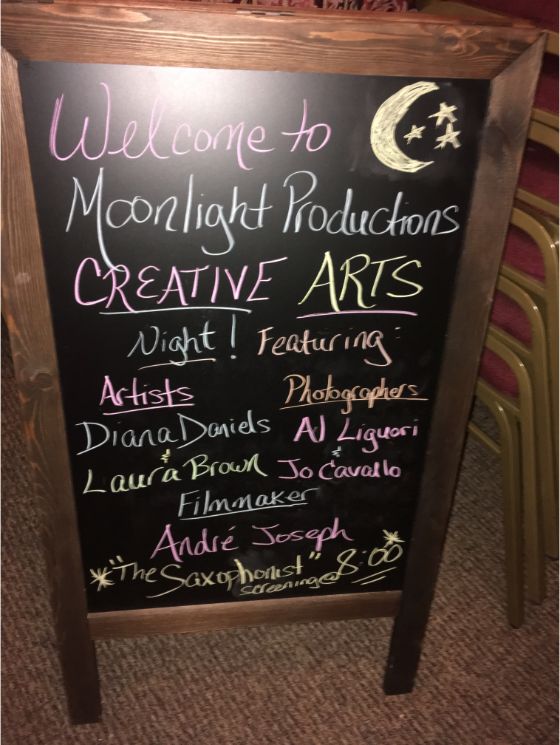 Welcome to
Moonlight Productions
CREATIVE ARTS
Night! Featuring:
Artists
Diana Daniels
&
Laura Brown
Photographers
Al Liguori
&
Jo Cavallo
Filmmaker
André Joseph
*"The Saxophonist" screening@ 8:00*